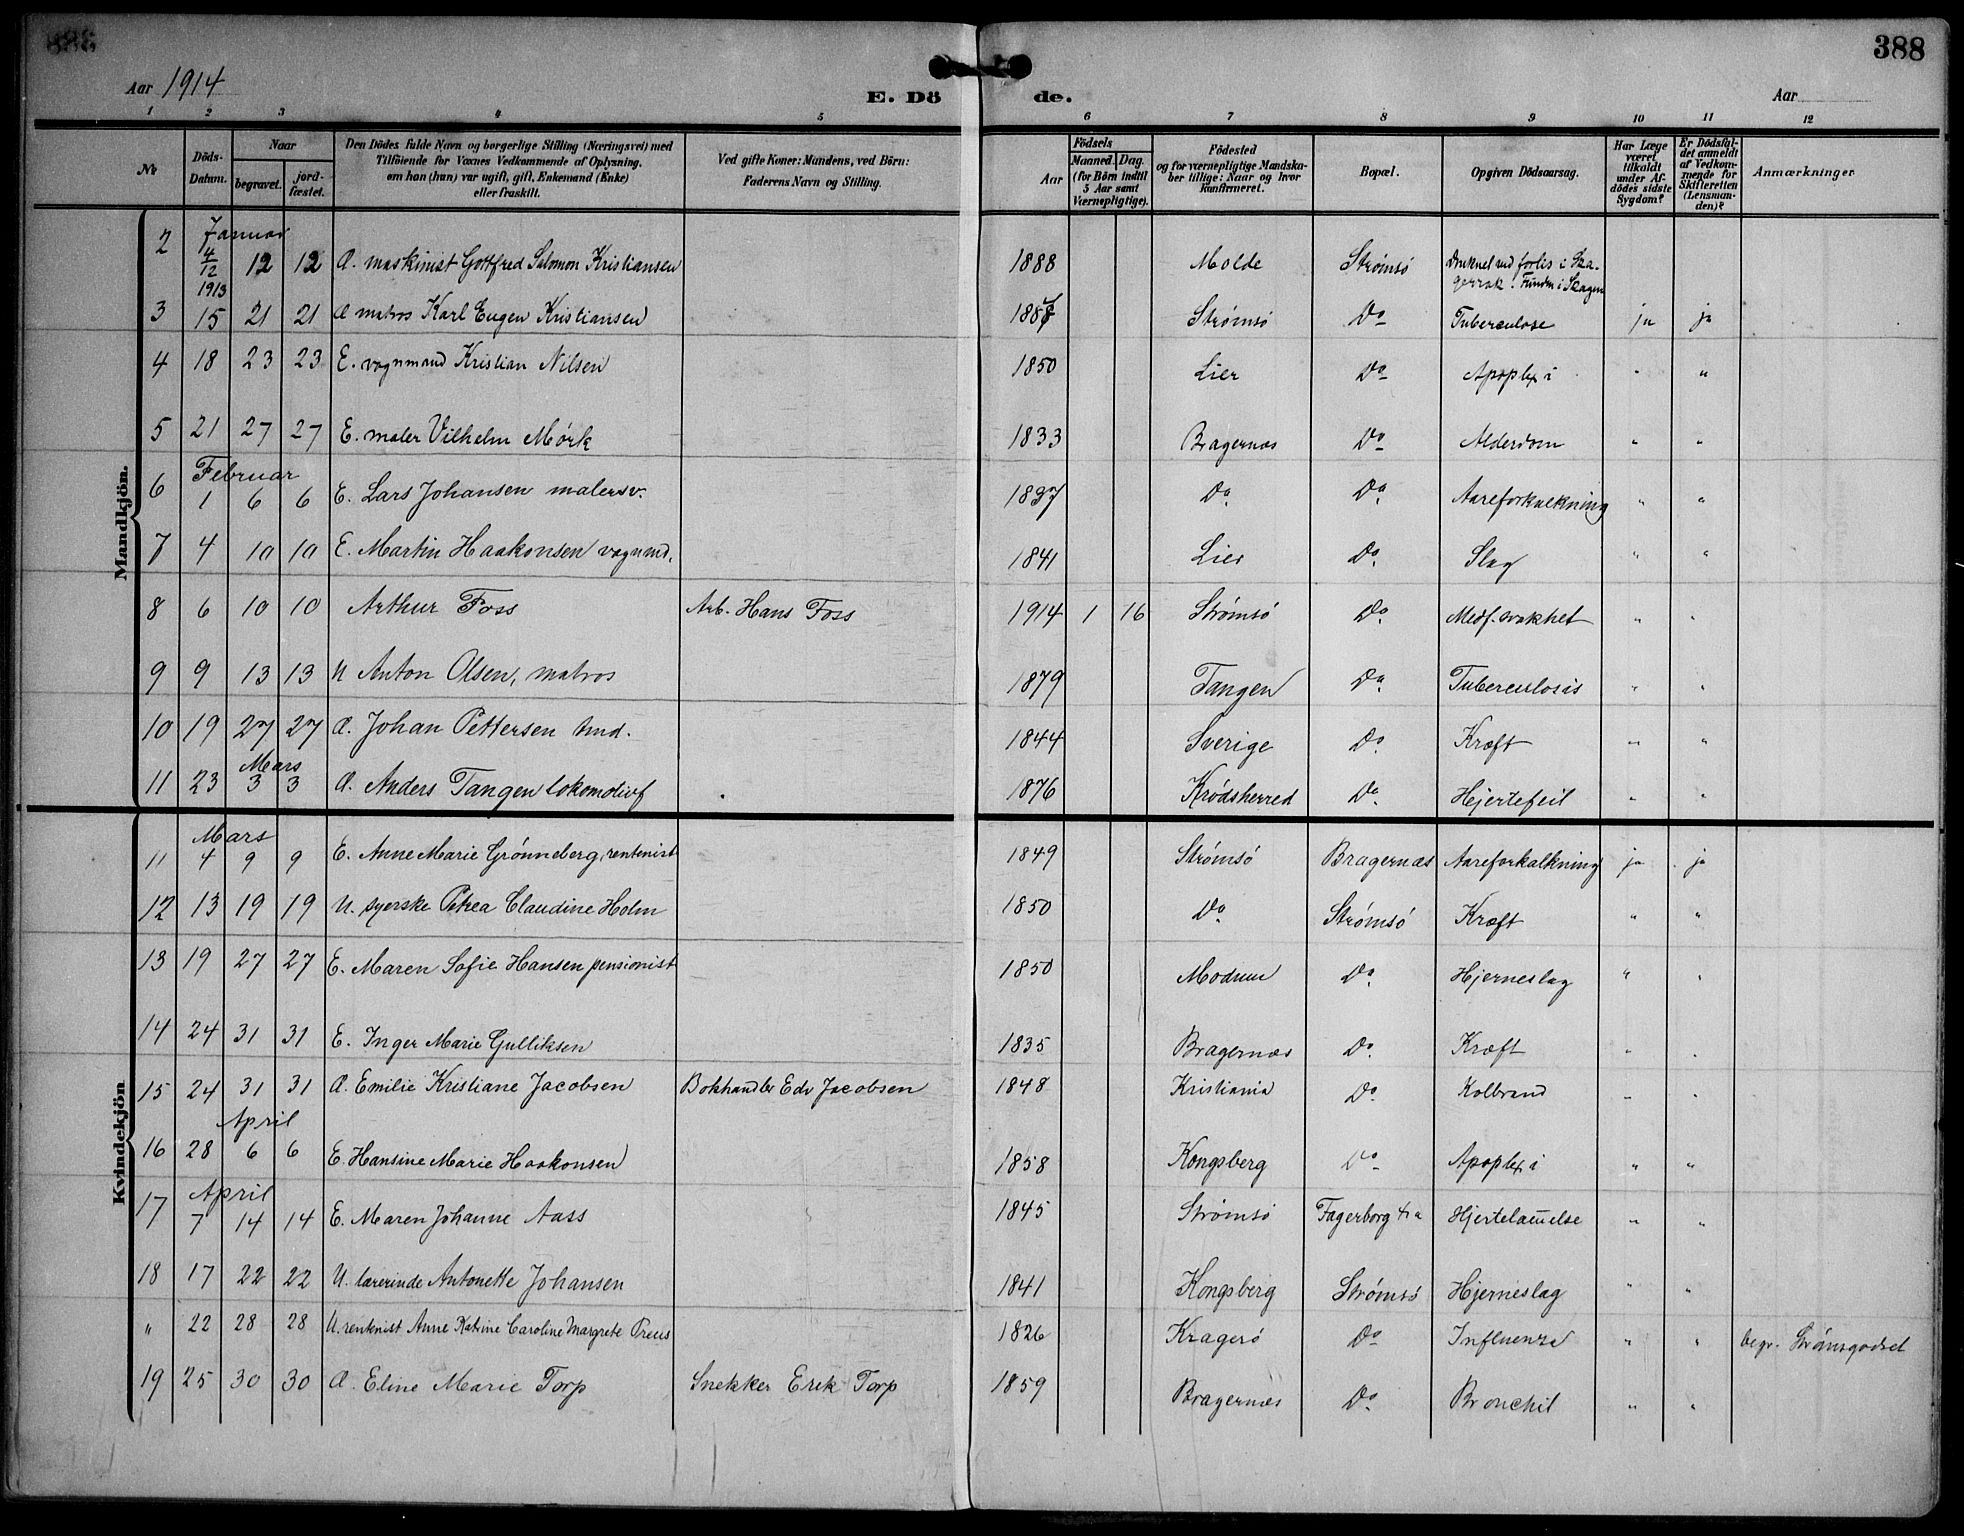 388
Aar 1914
E. Döde.
Aar
1 2 3 4 5 6 7 8 9 10 11 12
No
Döds-Datum.
Naar
begravet.
jordfæstet.
Den Dödes fulde Navn og borgerlige Stilling (Næringsvei) med
Tilföiende for Voxnes Vedkommende af Oplysning,
om han (hun) var ugift, gift, Enkemand (Enke)
eller fraskilt.
Ved gifte Koner: Mandens, ved Börn:
Faderens Navn og Stilling.
Födsels
Aar
Maaned. Dag.
(for Börn indtil
5 Aar samt
Værnepligtige).
Födested
og for værnepligtige Mandska-
ber tillige: Naar og hvor
konfirmeret.
Bopæl.
Opgiven Dödsaarsag.
Har Læge
været
tilkaldt
under Af-
dödes sidste
Sygdom?
Er Dödsfal-
det anmeldt
af Vedkom-
mende for
Skifteretten
(Lensman-
den)?
Anmærkninger
Mandkjön.
Januar
2 4/12 1913 12 12 G. maskinist Gottfred Salomon Kristiansen 1888 Molde Strømsö Druknet ved forlis i Ska-
gerrak. Funden i Skagen
3 15 21 21 G matros Karl Eugen Kristiansen Strømsö Do Tuberculose ja ja
4 18 23 23 E. vognmand Kristian Nilsen 1850 Lier Do Apoplexi " "
5 21 27 27 E. maler Vilhelm Mörk 1833 Bragernæs Do Alderdom " "
Februar
6 1 6 6 E. Lars Johansen malersv. 1837 Do Do Aareforkalkning " "
7 4 10 10 E. Martin Haakonsen vognmd. 1841 Lier Do Slag " "
8 6 10 10 Arthur Foss Arb. Hans Foss 1914 1 16 Strømsö Do Medf. svakhet " "
9 9 13 13 U Anton Olsen, matros 1879 Tangen Do Tuberculosis " "
10 19 27 27 G. Johan Pettersen tmd. 1844 Sverige Do Kræft " "
Mars
11 23 3 3 G. Anders Tangen lokomotivf 1876 Krødsherred Do Hjertefeil " "
Kvindekjön
Mars
11 4 9 9 E. Anne Marie Grønneberg, rentenist 1849 Strømsö Bragernæs Aareforkalkning ja ja
12 13 19 19 U. syerske Petrea Claudine Holm 1850 Do Strømsö Kræft " "
13 19 27 27 E. Maren Sofie Hansen pensionist 1850 Modum Do Hjerneslag " "
14 24 31 31 E. Inger Marie Gulliksen 1835 Bragernæs Do Kræft " "
15 24 31 31 G. Emilie Kristiane Jacobsen Bokhandler Edv Jacobsen 1848 Kristiania Do Kolbrand " "
April
16 28 6 6 E. Hansine Marie Haakonsen 1858 Kongsberg Do Apoplexi " "
April
17 7 14 14 E. Maren Johanne Aass 1845 Strømsö Fagerborg Hjertelammelse " "
18 17 22 22 U. lærerinde Antonette Johansen 1841 Kongsberg Strømsö Hjerneslag " "
" 22 28 28 U. rentenist Anne Katrine Caroline Margrete Preus 1826 Kragerö Do Influenza " " begr. Strömsgodset
19 25 30 30 G. Eline Marie Torp Snekker Erik Torp 1859 Bragernæs Do Bronchit " "